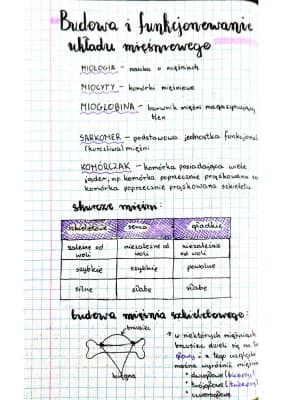 Budowa i funkcjonowanie
układu mięśniowego
MIOLOGIA - nauka o mięśniach
MIOCYTY - komórki mięśniowe
MIOGLOBINA - barwnik mięśni magazynujący
tlen
SARKOMER - podstawowa jednostka funkcjonal
(kurczliwa) mięśni
KOMÓRCZAK - komórka posiadająca wiele
jąder, np. komórka poprzecznie prążkowana
komórka poprzecznie prążkowana szkieletu
skurcze mięśni:
szkieletowe serca gładkie
zależne od niezależne od niezależnie
woli woli od woli
szybkie szybkie powolne
silne słabe słabe
budowa mięśnia szkieletowego:
brzusiec
ścięgna
w niektórych mięśniach
brzusiec dzieli się na
głowy i z tego względu
można wyróżnić mięśnie
• dwugłowe (bicepsy)
• trójgłowe (tricepsy)
• czworogłowe